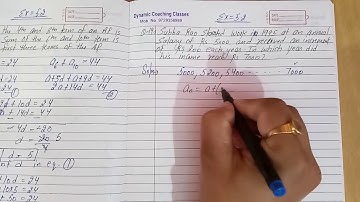 Ex=5.2
Dynamic Coaching Classes
Ex=5.2
The 4th and 8th term of an AP is
Sum of the 6th and 10th term is
first three terms of the AP.
a6 + a10 = 44
a+5d + a+9d = 44
2a+14d = 44
= 24
= 24
-4d = -20
d = 5
of d in eq. ①
+10d = 24
= 24
Subba Rao Started work in 1995 at an annual
Salary of Rs 5000 and received an increment
of Rs 200 each year. In which year did
his income reach Rs 7000?
Soln
5000, 5200, 5400 ------ 7000
an = a+(